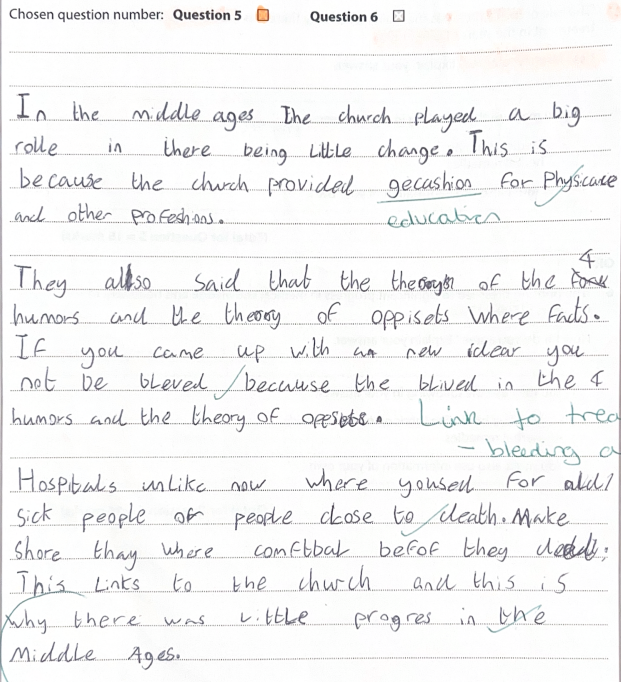 Chosen question number: Question 5 Question 6
In the middle ages The church played a big
rolle in there being little change. This is
because the church provided gecashion for Physicave
and other profeshions. education
4
They also said that the theorys of the
humors and the theory of oppisets where facts.
If you came up with an new idear you
not be bleved because the blived in the 4
humors and the theory of oppsets. Link to trea
- bleeding a
Hospitals unlike now where yoused for old/
sick people or people close to death. Make
shore thay where comftbal befof they
This links to the church and this is
why there was little progres in the
Middle Ages.